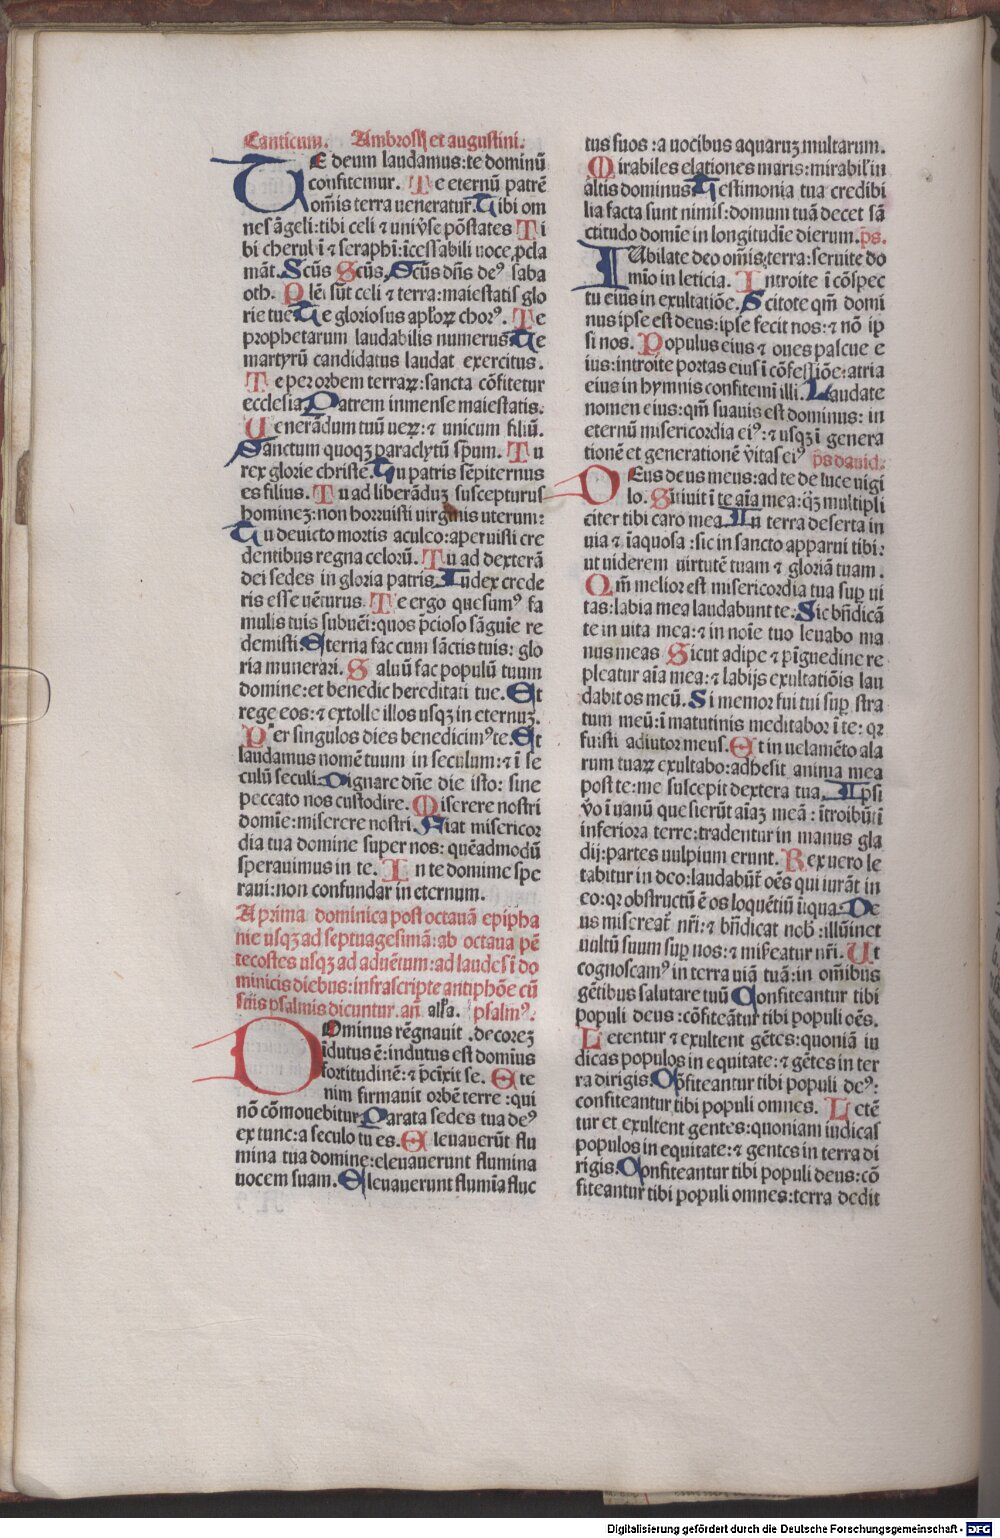 Canticum. Ambrosij et augustini.
TE deum laudamus: te dominū
confitemur. Te eternū patrē
om̄is terra ueneratur̄. Tibi om
nes āgeli: tibi celi ⁊ uniṽse pōstates Ti
bi cherubī ⁊ seraphī: īcessabili uoce ꝓcla
māt. Scūs Scūs. Scūs dn̄s deꝰ saba
oth. Plēi sūt celi ⁊ terra: maiestatis glo
rie tue. Te gloriosus apl̄oꝝ chorꝰ. Te
prophetarum laudabilis numerus. Te
martyrū candidatus laudat exercitus.
Te per orbem terraꝝ: sancta cōfitetur
ecclesia. Patrem inmense maiestatis.
Uenerāndum tuū ueꝝ: ⁊ unicum filiū.
Sanctum quoqꝫ paraclytū sp̄um. Tu
rex glorie christe. Tu patris sēpiternus
es filius. Tu ad liberāduꝫ suscepturus
homineꝫ: non horruisti uirginis uterum:
Tu deuicto mortis aculeo: aperuisti cre
dentibus regna celorū. Tu ad dexterā
dei sedes in gloria patris. Iudex crede
ris esse uēturus. Te ergo quesumꝰ fa
mulis tuis subuēi: quos p̄cioso sāguīe re
demisti. Eterna fac cum sāctis tuis: glo
ria munerari. Saluū fac populū tuum
domine: et benedic hereditati tue. Et
rege eos: ⁊ extolle illos usqꝫ in eternuꝫ.
Per singulos dies benedicimꝰ te. Et
laudamus nomē tuum in seculum: ⁊ ī se
culū seculi. Dignare dn̄e die isto: sine
peccato nos custodire. Miserere nostri
domīe: miserere nostri. Fiat misericor
dia tua domine super nos: quēadmodū
sperauimus in te. In te domine spe
raui: non confundar in eternum.
A prima dominica post octauā epipha
nie usqꝫ ad septuagesimā: ab octaua pē
tecostes usqꝫ ad aduētum: ad laudes ī do
minicis diebus: infrascripte antiphōe cū
suis psalmis dicuntur. an̄. all̄a. psalmꝰ.
DOminus rēgnauit. decoreꝫ
īdutus ē: indutus est domīus
fortitudinē: ⁊ p̄cīxit se. Ete
nim firmauit orbē terre: qui
nō cōmouebitur. Parata sedes tua deꝰ
ex tunc: a seculo tu es. Eleuauerūt flu
mina tua domine: eleuauerunt flumina
uocem suam. Eleuauerunt flumīa fluc
tus suos: a uocibus aquaruꝫ multarum.
Mirabiles elationes maris: mirabil' in
altis dominus. Testimonia tua credibi
lia facta sunt nimis: domum tuā decet sā
ctitudo domīe in longitudīe dierum. ps̄.
IUbilate deo om̄is terra: seruite do
mīo in leticia. Introite ī cōspec
tu eius in exultatiōe. Scitote qm̄ domi
nus ipse est deus: ipse fecit nos: ⁊ nō ip
si nos. Populus eius ⁊ oues pascue e
ius: introite portas eius ī cōfessiōe: atria
eius in hymnis confitemī illi. Laudate
nomen eius: qm̄ suauis est dominus: in
eternū misericordia eiꝰ: ⁊ usqꝫ ī genera
tionē et generationē ṽitas eiꝰ ps̄ dauid.
DEus deus meus: ad te de luce uigi
lo. Sitiuit ī te aīa mea: q̄ꝫ multipli
citer tibi caro mea. In terra deserta in
uia ⁊ īaquosa: sic in sancto apparui tibi:
ut uiderem uirtutē tuam ⁊ gloriā tuam.
Qm̄ melior est misericordia tua suꝑ ui
tas: labia mea laudabunt te. Sic bn̄dicā
te in uita mea: ⁊ in noīe tuo leuabo ma
nus meas Sicut adipe ⁊ pīguedine re
pleatur aīa mea: ⁊ labijs exultatiōis lau
dabit os meū. Si memor fui tui suꝑ stra
tum meū: ī matutinis meditabor ī te: qꝛ
fuisti adiutor meus. Et in uelamēto ala
rum tuaꝝ exultabo: adhesit anima mea
post te: me suscepit dextera tua. Ip̄si
ṽo ī uanū quesierūt aīaꝫ meā: ītroibūt ī
inferiora terre: tradentur in manus gla
dij: partes uulpium erunt. Rex uero le
tabitur in deo: laudabūt̄ oēs qui iurāt in
eo: qꝛ obstructū ē os loquētiū iīqua. De
us misereat̄ nr̄i: ⁊ bn̄dicat nob̄: illūinet
uultū suum suꝑ nos: ⁊ mis̄eatur nr̄i. Ut
cognoscamꝰ in terra uiā tuā: in om̄ibus
gētibus salutare tuū Confiteantur tibi
populi deus: cōfiteātur tibi populi oēs.
Letentur ⁊ exultent gētes: quoniā iu
dicas populos in equitate: ⁊ gētes in ter
ra dirigis. Cōfiteantur tibi populi deꝰ:
confiteantur tibi populi omnes. Letē
tur et exultent gentes: quoniam iudicas
populos in equitate: ⁊ gentes in terra di
rigis. Confiteantur tibi populi deus: cō
fiteantur tibi populi omnes: terra dedit
Digitalisierung gefördert durch die Deutsche Forschungsgemeinschaft - DFG